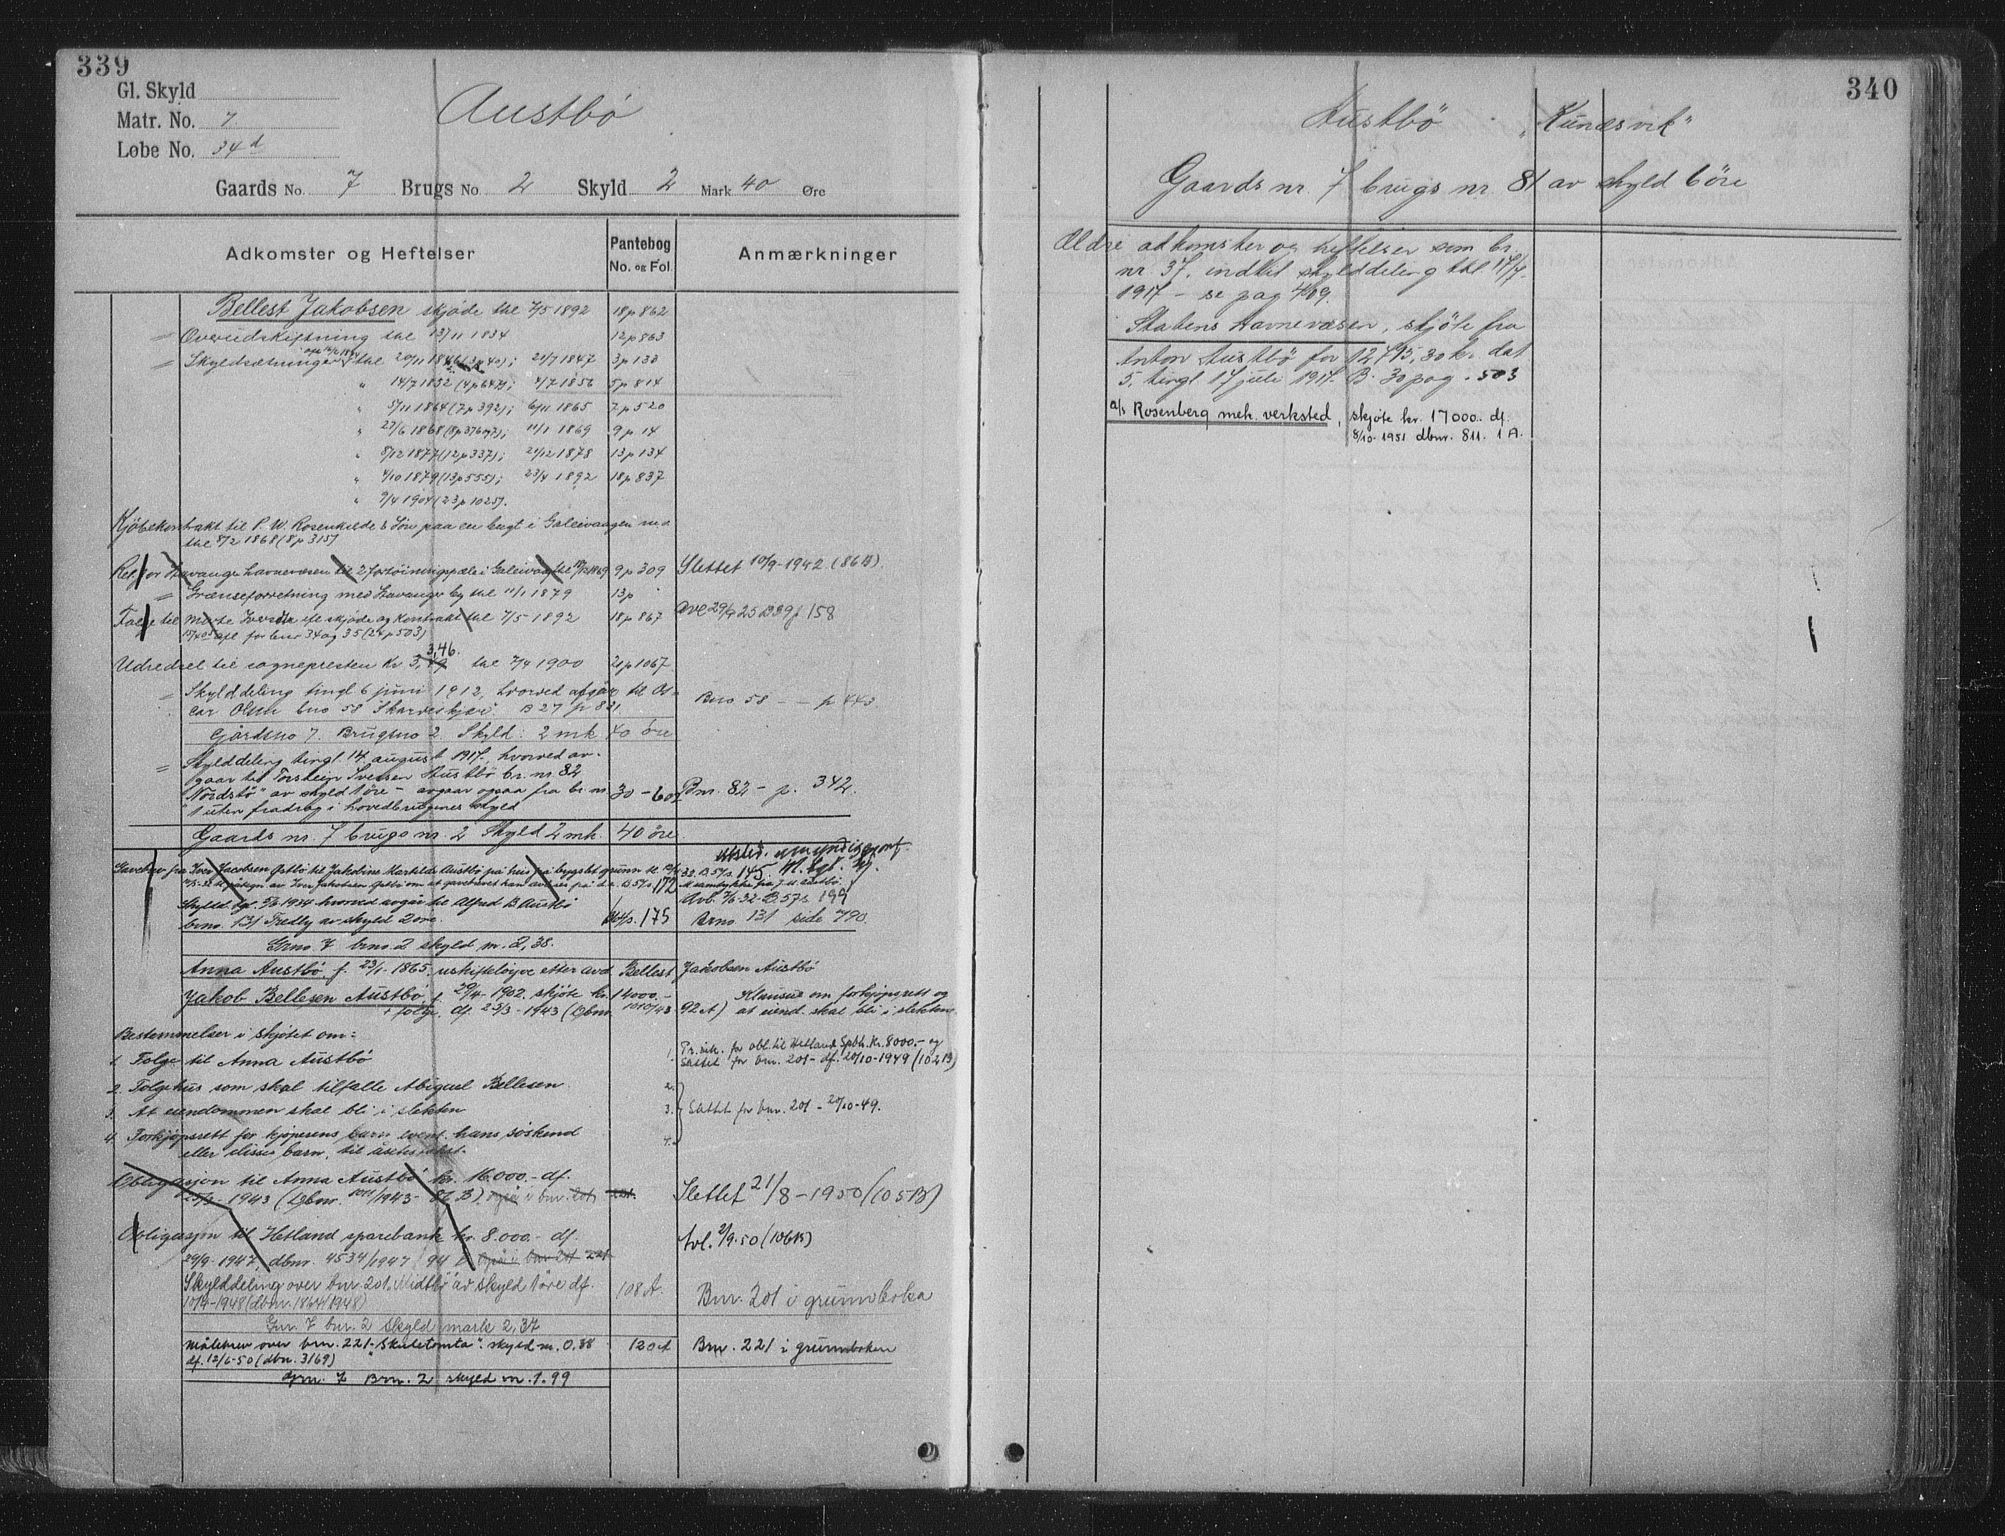 339
Gl. Skyld
Matr. No. 7
Løbe No. 34d
Austbø
Gaards No. 7 Brugs No. 2 Skyld 2 Mark 40 Øre
Adkomster og Heftelser Pantebog No. og Fol. Anmærkninger
Bellest Jakobsen skjøde thl 7/5 1892 18p 862
" Overudskiftning thl 13/11 1834 12p 863
" Skyldsætninger thl 20/11 1846 (3p 40); 21/7 1847 3p 133
" 14/7 1852 (4p 647); 4/7 1856 5p 814
" 5/11 1864 (7p 392); 6/11 1865 7p 520
" 27/6 1868 (8p 376); 11/1 1869 9p 14
" 5/12 1877 (12p 337); 21/12 1878 13p 134
" 4/10 1879 (13p 555); 23/4 1892 18p 837
" 9/4 1904 (23p 1025).
Kjøbekontrakt til P. W. Rosenkilde & Søn paa en bugt i Galeivaagen
thl 8/2 1868 (8p 315)
Ret for Stavanger havnevæsen til 2 fortøiningspæle i Galeivaag thl 1869 9p 309 Slettet 10/9-1942 (86B)
" Grænseforretning med Stavanger by thl 11/1 1879 13p
Folge til Marte Iversdt. efl skjøde og kontrakt thl 7/5 1892 18p 867 Avl 29/9 25 B39f 158
afl for bnr 34 og 35 (24p 503)
Udredsel til sognepresten Kr. 3,46. thl 7/4 1900 21p 1067
" Skylddeling tingl 6 juni 1912, hvorved afgaar til Os-
car Olsen bno 58 Skarveskjær. B 27 p 831 Bno 58 — p 443
Gårdsno 7. Brugsno 2 Skyld: 2 mk 40 øre
" Skylddeling tingl. 14 august 1917, hvorved av-
gaar til Torstein Svensen Austbø br. nr. 82
"Nordstø" av skyld 1 øre - avgaar ogsaa fra br. nr. 30-607 Bnr. 82 - p. 342.
1 uten fradrag i hovedbrugenes skyld
Gaards nr. 7 brugs nr. 2 Skyld 2 mk. 40 øre
Gavebrev fra Iver Jacobsen Østbø til Jakobine Martilde Austbø på hus på bygslet grunn
Skyldd. tgl. 1934 hvorved avgår til Alfred B Austbø Avb. 7/6-32 B.57s. 199
bno. 131 Fredly av skyld 2 øre. p. 175 Brno 131 side 790.
Grno 7 bno 2 skyld m. 2,38.
Anna Austbø, f. 23/1-1865, uskifteløyve etter avd. Bellest Jakobsen Austbø
Jakob Bellesen Austbø, f. 29/4-1902. skjøte kr. 14000.- Klausul om forkjøpsrett og
+ folge, df. 23/3-1943 (Dbnr. 1010/43 92A) at eiend. skal bli i slekten.
Bestemmelser i skjøtet om:
1. Folge til Anna Austbø 1. Pr. vik. for obl. til Hetland Spbk. Kr. 8000.- og
slettet for bnr. 201 - df. 20/10-1949 (102B)
2. Folgehus som skal tilfalle Abigael Bellesen 2.
3. At eiendommen skal bli i slekten 3. Slettet for bnr. 201 - 20/10-49.
4. Forkjøpsrett for kjøperens barn event. hans søskend 4.
eller disses barn, til åsetestakst.
Obligasjon til Anna Austbø kr. 16.000.- df.
23/3-1943 (Dbnr. 1011/1943- 86 B) også i bnr. 201 221. Slettet 21/8-1950 (105B)
Obligasjon til Hetland sparebank kr. 8.000.- df. Avl. 2/9.50 (106B)
29/9-1947, dbnr. 4534/1947 (94 B også i bnr 201 221
Skylddeling over bnr. 201 "Midtbø" av skyld 1 øre df. 108 A. Bnr. 201 i grunnboka
10/4-1948 (dbnr. 1864/1948)
Gnr. 7 bnr. 2 skyld mark 2,37
Målebrev over bnr. 221 "Skuletomta". skyld m. 0.38 120A Bnr. 221 i grunnboken
df. 12/6-50 (dbn. 3169)
Gnr. 7 Bnr. 2 skyld m. 1.99
340
Austbø "Kunesvik"
Gaards nr. 7 brugs nr. 81 av skyld 6 øre
Ældre adkomster og heftelser som br.
nr. 37. indtil skylddeling thl 17/7
1917 - se pag 409.
Statens Havnevæsen, skjøte fra
Anton Austbø for 12795,30 kr. dat
5, tingl 17 juli 1917. B. 30 pag. 503
a/s Rosenberg mek. verksted, skjøte kr. 17000.. df.
8/10-1951 dbnr. 811. 1 A.